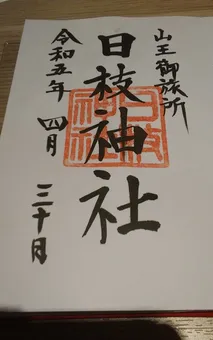 山王御旅所
日枝神社
令和五年 四月
三十日
日枝
神社